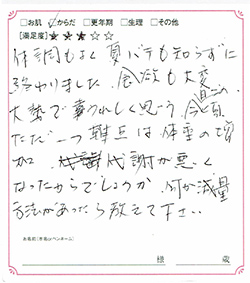 □お肌 ☑からだ □更年期 □生理 □その他
【満足度】★★★☆☆
体調もよく夏バテも知らずに
終わりました 食欲も大変
大勢で 楽しく思う 今日この頃
ただ一つ難点は体重の増
加 代謝が悪く
なったからでしょうか 何か減量
方法があったら教えて下さい
お名前(市名orペンネーム)
様 歳